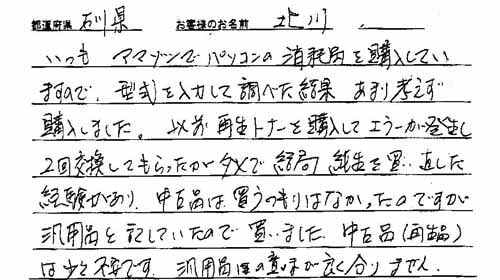 都道府県 石川県 お客様のお名前 北川
いつも アマゾンでパソコンの消耗品を購入してい
ますので、型式を入力して調べた結果 あまり考えず
購入しました。以前 再生トナーを購入してエラーが発生し
2回交換してもらったがダメで 結局 純正を買い直した
経験があり、中古品は買うつもりはなかったのですが
汎用品と記していたので買いました。中古品(再生品)
は少々不安です。汎用品の意味が良く分りません。